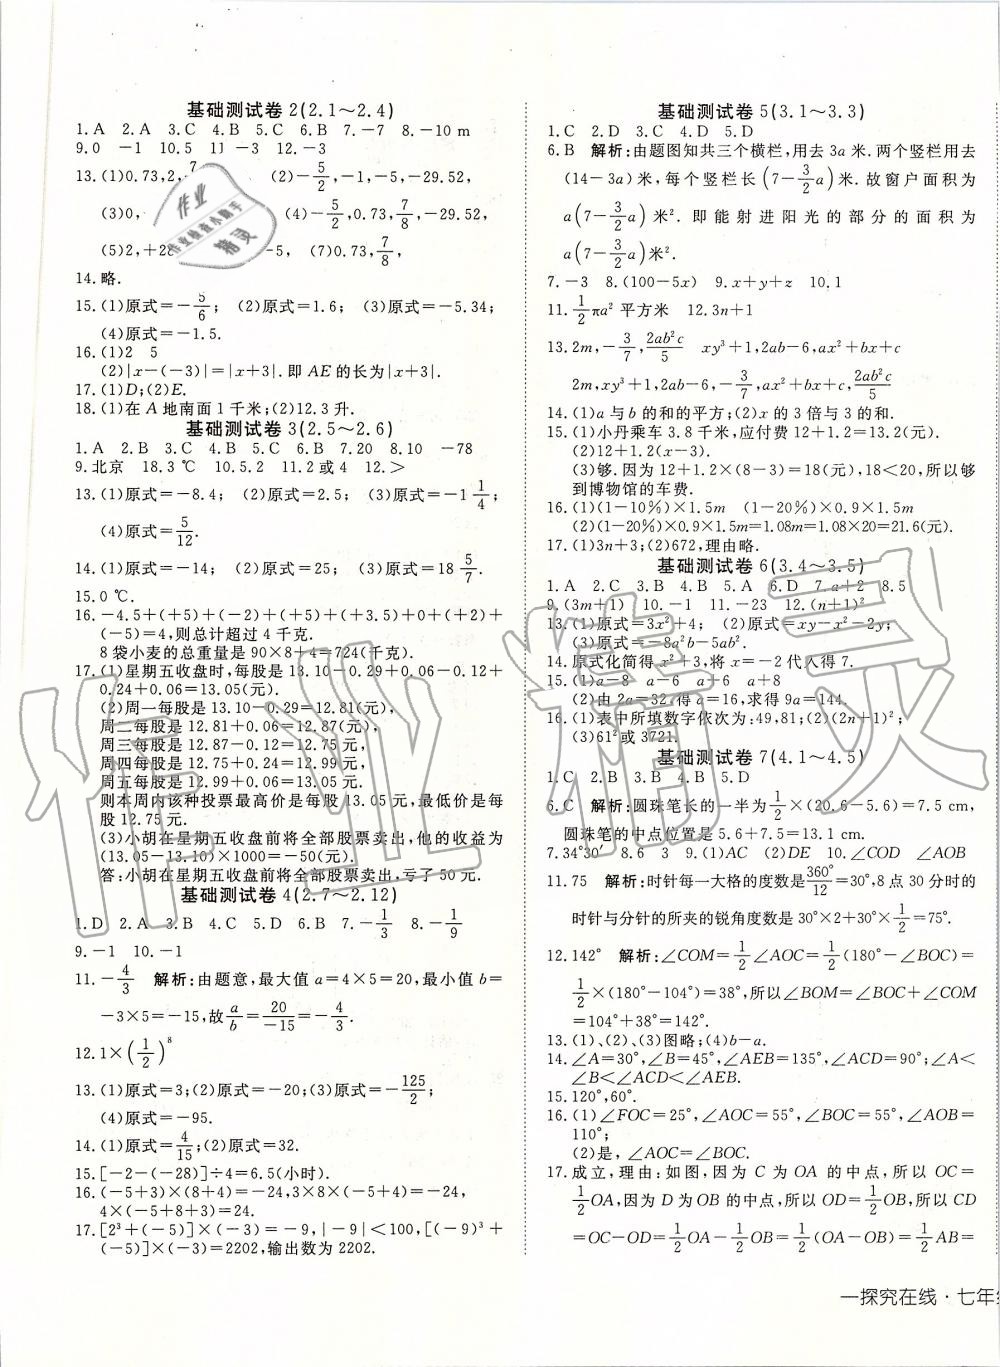 基础测试卷 2(2.1～2.4)
1.A 2.A 3.C 4.B 5.C 6.B 7.－7 8.－10 m
9.0 －1 10.5 11 －3 12.－3
13.(1)0.73,2, 7 (2)－5/2,－1,－5,－29.52,
(3)0, (4)－5/2,0.73,7/8,－29.52
(5)2,+28 －5, (7)0.73,7/8,
14.略.
15.(1)原式＝－5/6; (2)原式＝1.6; (3)原式＝－5.34;
(4)原式＝－1.5.
16.(1)2 5
(2)|x－(－3)|＝|x+3|.即 AE 的长为|x+3|.
17.(1)D;(2)E.
18.(1)在 A 地南面 1 千米;(2)12.3 升.
基础测试卷 3(2.5～2.6)
1.A 2.B 3.C 4.C 5.B 6.B 7.20 8.10 －78
9.北京 18.3 ℃ 10.5.2 11.2或4 12.＞
13.(1)原式＝－8.4; (2)原式＝2.5; (3)原式＝－1 1/4;
(4)原式＝5/12.
14.(1)原式＝－14; (2)原式＝25; (3)原式＝18 5/7.
15.0 ℃.
16.－4.5+(+5)+(－2)+(+2)+(+5)+(+3.5)+0+(+2)+
(－5)＝4,则总计超过 4 千克.
8 袋小麦的总重量是 90×8+4＝724(千克).
17.(1)星期五收盘时,每股是 13.10－0.29+0.06－0.12+
0.24+0.06＝13.05(元).
(2)周一每股是 13.10－0.29＝12.81(元),
周二每股是 12.81+0.06＝12.87 元,
周三每股是 12.87－0.12＝12.75 元,
周四每股是 12.75+0.24＝12.99 元,
周五每股是 12.99+0.06＝13.05 元.
则本周内该种投票最高价是每股 13.05 元,最低价是每
股 12.75 元.
(3)小胡在星期五收盘前将全部股票卖出,他的收益为
(13.05－13.10)×1000＝－50(元).
答:小胡在星期五收盘前将全部股票卖出,亏了 50 元.
基础测试卷 4(2.7～2.12)
1.D 2.A 3.C 4.C 5.D 6.B 7.－1/3 8.－1/9
9.－1 10.－1
11.－4/3 解析:由题意,最大值 a＝4×5＝20,最小值 b＝
－3×5＝－15,故a/b＝20/－15＝－4/3.
12.1×(1/2)⁸
13.(1)原式＝3;(2)原式＝－20;(3)原式＝－125/2;
(4)原式＝－95.
14.(1)原式＝4/15;(2)原式＝32.
15.[－2－(－28)]÷4＝6.5(小时).
16.(－5+3)×(8+4)＝－24,3×8×(－5+4)＝－24,
4×(－5+8+3)＝24.
17.[2³+(－5)]×(－3)＝－9,|－9|＜100,[(－9)³+
(－5)]×(－3)＝2202,输出数为 2202.
基础测试卷 5(3.1～3.3)
1.C 2.D 3.C 4.D 5.D
6.B 解析:由题图知共三个横栏,用去 3a 米.两个竖栏用去
(14－3a)米,每个竖栏长(7－3/2a)米.故窗户面积为
a(7－3/2a)米².即能射进阳光的部分的面积为
a(7－3/2a)米².
7.－3 8.(100－5x) 9.x+y+z 10.1
11.1/2πa² 平方米 12.3n+1
13.2m,－3/7,2ab²c/5 xy³+1,2ab－6,ax²+bx+c
2m,xy³+1,2ab－6,－3/7,ax²+bx+c,2ab²c/5
14.(1)a 与 b 的和的平方;(2)x 的 3 倍与 3 的和.
15.(1)小丹乘车 3.8 千米,应付费 12+1.2＝13.2(元).
(2)12+1.2(x－3).
(3)够.因为 12+1.2×(8－3)＝18(元),18＜20,所以够
到博物馆的车费.
16.(1)(1－10%)×1.5m (1－20%)×0.9×1.5m
(2)(1－20%)×0.9×1.5m＝1.08m＝1.08×20＝21.6(元).
17.(1)3n+3;(2)672,理由略.
基础测试卷 6(3.4～3.5)
1.A 2.C 3.B 4.B 5.A 6.D 7.a+2 8.5
9.(3m+1) 10.－1 11.－23 12.(n+1)²
13.(1)原式＝3x²+4; (2)原式＝xy－x²－2y;
(3)原式＝－8a²b－5ab².
14.原式化简得 x²+3,将 x＝－2 代入得 7.
15.(1)a－8 a－6 a+6 a+8
(2)由 2a＝32,得 a＝16,求得 9a＝144.
16.(1)表中所填数字依次为:49,81;(2)(2n+1)²;
(3)61²或 3721.
基础测试卷 7(4.1～4.5)
1.C 2.B 3.B 4.B 5.D
6.C 解析:圆珠笔长的一半为1/2×(20.6－5.6)＝7.5 cm,
圆珠笔的中点位置是 5.6+7.5＝13.1 cm.
7.34°30′ 8.6 3 9.(1)AC (2)DE 10.∠COD ∠AOB
11.75 解析:时针每一大格的度数是360°/12＝30°,8 点 30 分时的
时针与分针的所夹的锐角度数是 30°×2+30°×1/2＝75°.
12.142° 解析:∠COM＝1/2∠AOC＝1/2(180°－∠BOC)＝
1/2×(180°－104°)＝38°,所以∠BOM＝∠BOC+∠COM
＝104°+38°＝142°.
13.(1)、(2)、(3)图略;(4)b－a.
14.∠A＝30°,∠B＝45°,∠AEB＝135°,∠ACD＝90°;∠A＜
∠B＜∠ACD＜∠AEB.
15.120°,60°.
16.(1)∠FOC＝25°,∠AOC＝55°,∠BOC＝55°,∠AOB＝
110°;
(2)是,∠AOC＝∠BOC.
17.成立,理由:如图,因为 C 为 OA 的中点,所以 OC＝
1/2OA,因为 D 为 OB 的中点,所以 OD＝1/2OB,所以 CD
＝OC－OD＝1/2OA－1/2OB＝1/2(OA－OB)＝1/2AB＝
一探究在线·七年
作业精灵